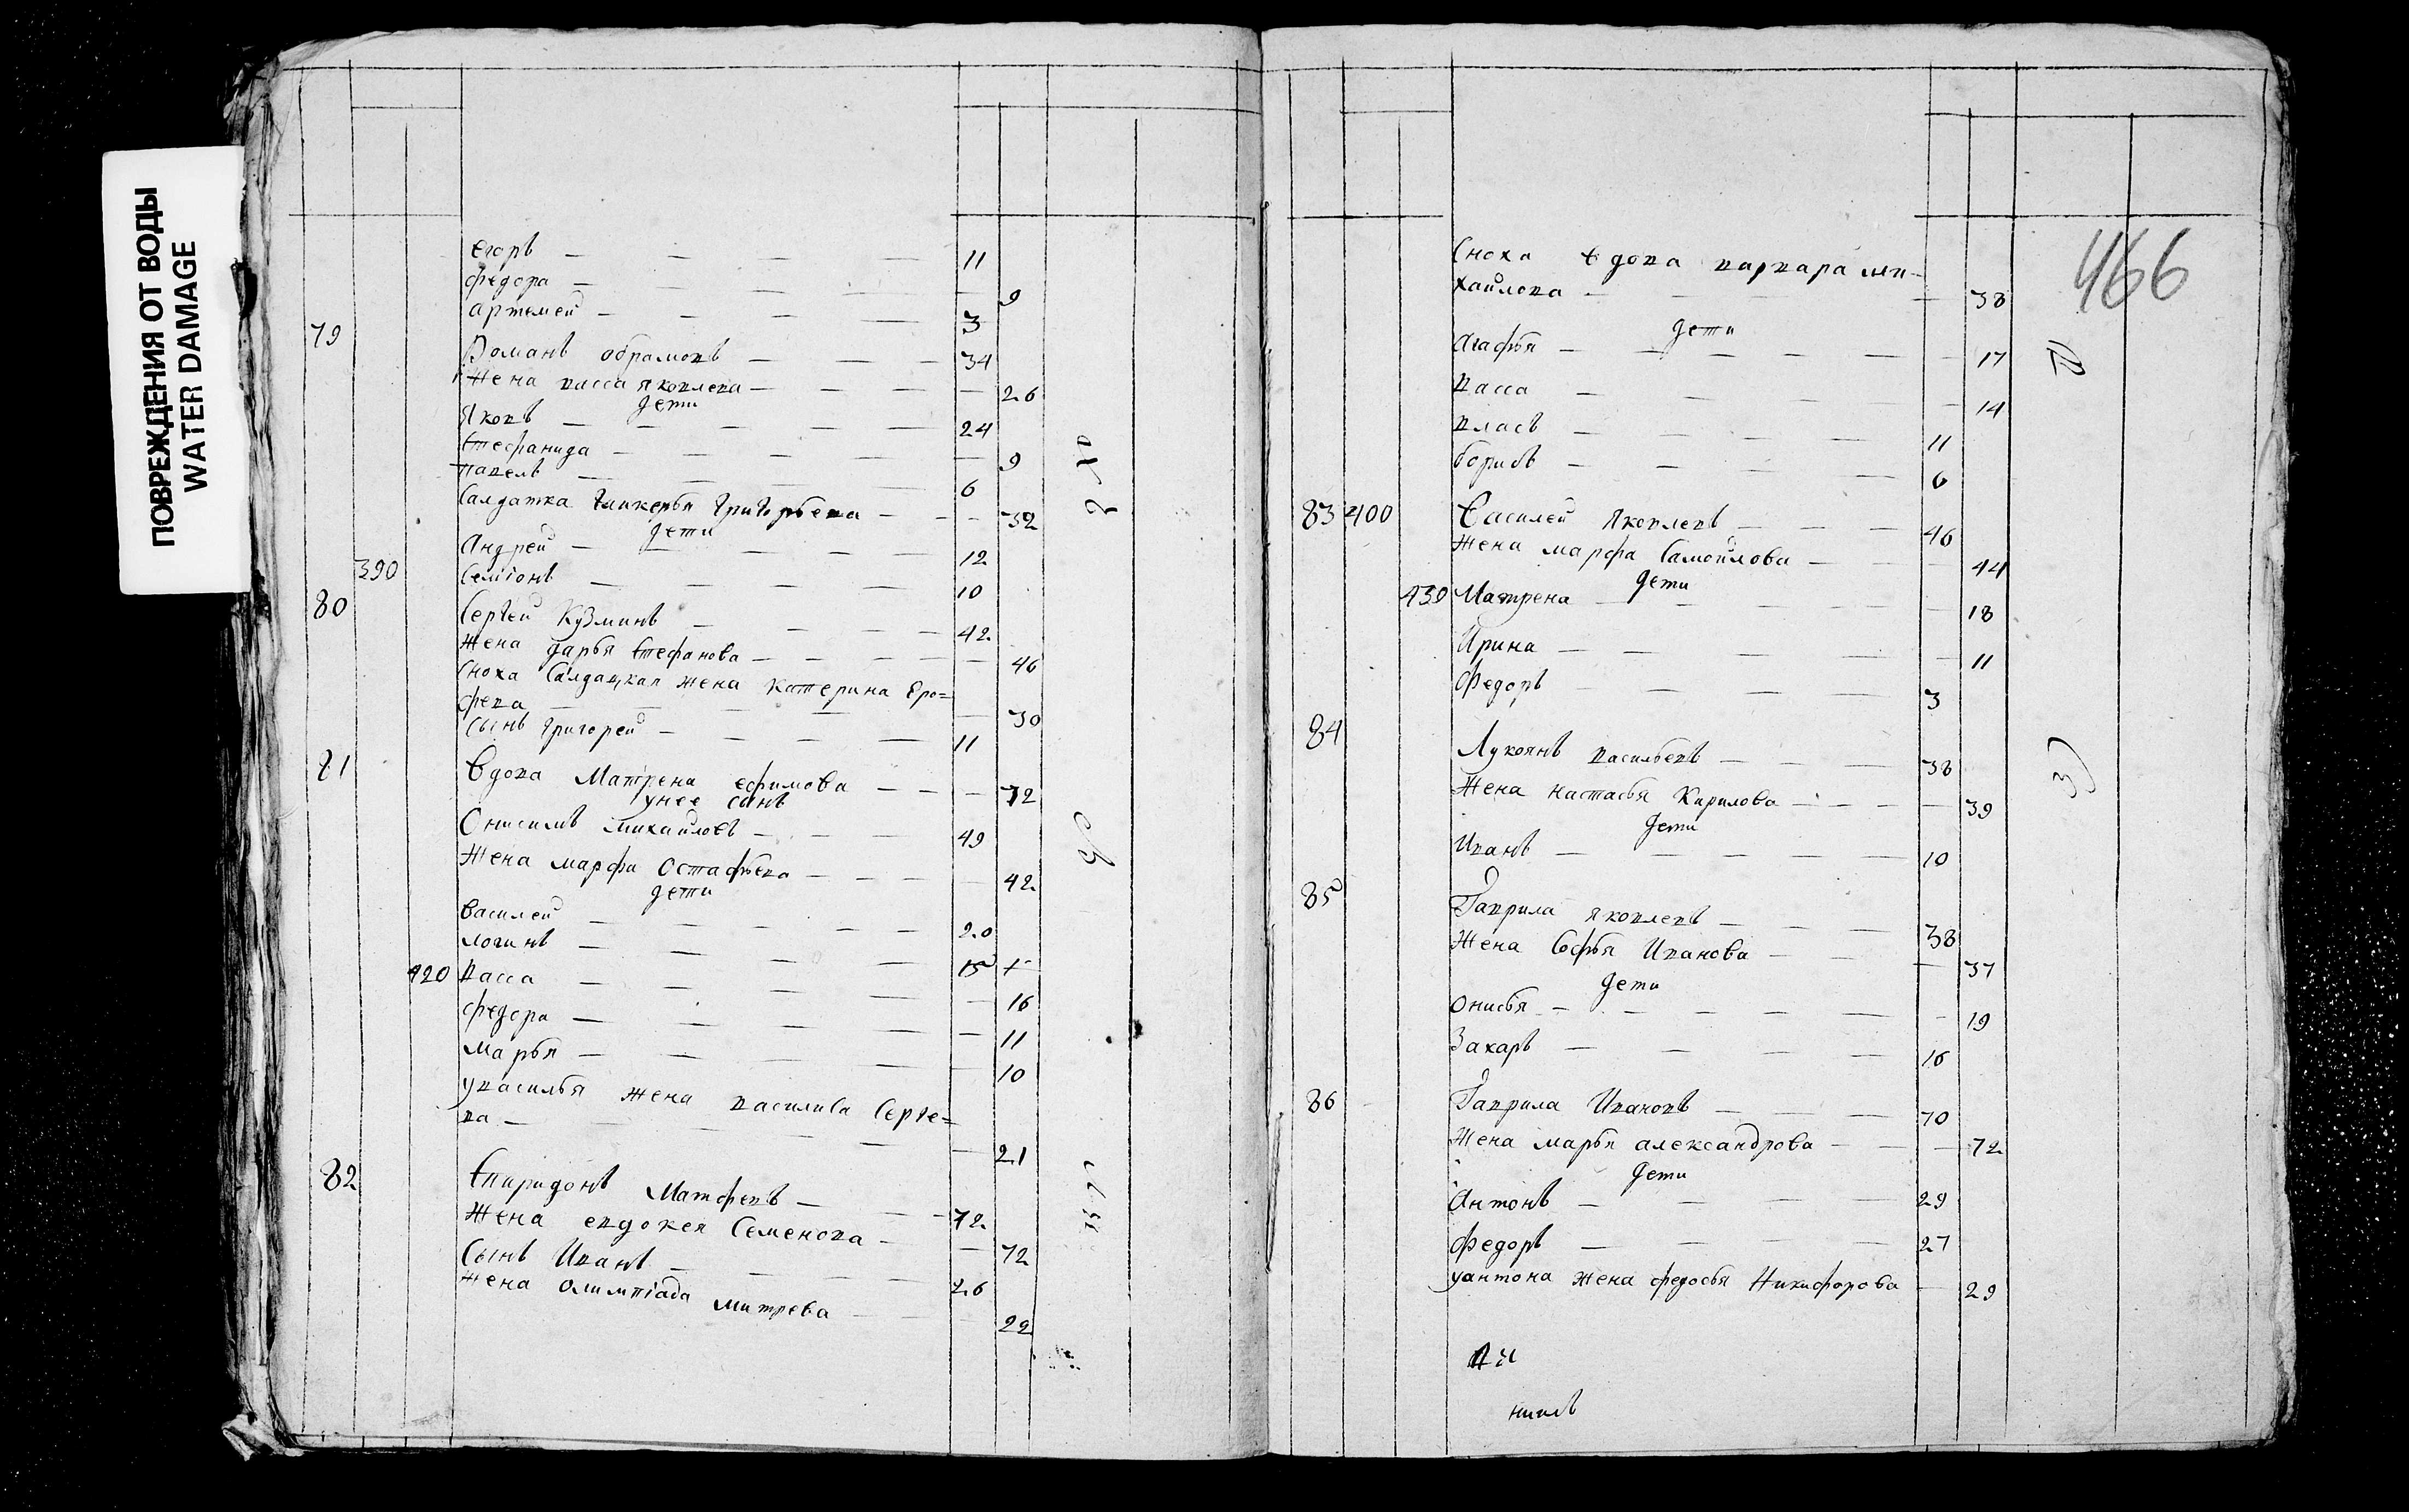 ПОВРЕЖДЕНИЯ ОТ ВОДЫ
WATER DAMAGE
егоръ — 11
федора — 9
артемей — 3
79 Романъ обрамовъ — 34
Жена васса яковлева — 26
дети
Яковъ — 24
Стефанида — 9
павелъ — 6
Салдатка гликерья григорьева — 32
дети
Андрей — 12
390 Семіонъ — 10
80 Сергей Кузминъ — 42
Жена дарья стефанова — 46
Сноха Салдацкая жена катерина Еро=
феева — 30
Сынъ григорей — 11
81 Вдова Матрена ефимова — 72
унее сынъ
Онисимъ михайловъ — 49
Жена марфа Остафьева — 42
дети
Василей — 20
логинъ — 15
420 васса — 16
федора — 11
марья — 10
увасилья жена василиса Серге=
ва — 21
82 Спиридонъ Матфевъ — 72
Жена евдокея Семенова — 72
Сынъ Иванъ — 26
Жена олимпіада митрева — 22
466
Сноха вдова варвара ми-
хайлова — 38
дети
Агафья — 17
васса — 14
власъ — 11
борисъ — 6
83 400 Василей яковлевъ — 46
Жена марфа Самойлова — 44
дети
430 Матрена — 18
Ирина — 11
Федоръ — 3
84 Лукоянъ васильевъ — 38
Жена настасья Кирилова — 39
дети
Иванъ — 10
85 Гаврила яковлевъ — 38
Жена Софья Иванова — 37
дети
онисья — 19
Захаръ — 16
86 Гаврила Ивановъ — 70
Жена марья александрова — 72
дети
Антонъ — 29
федоръ — 27
уантона жена федосья Никифорова — 29